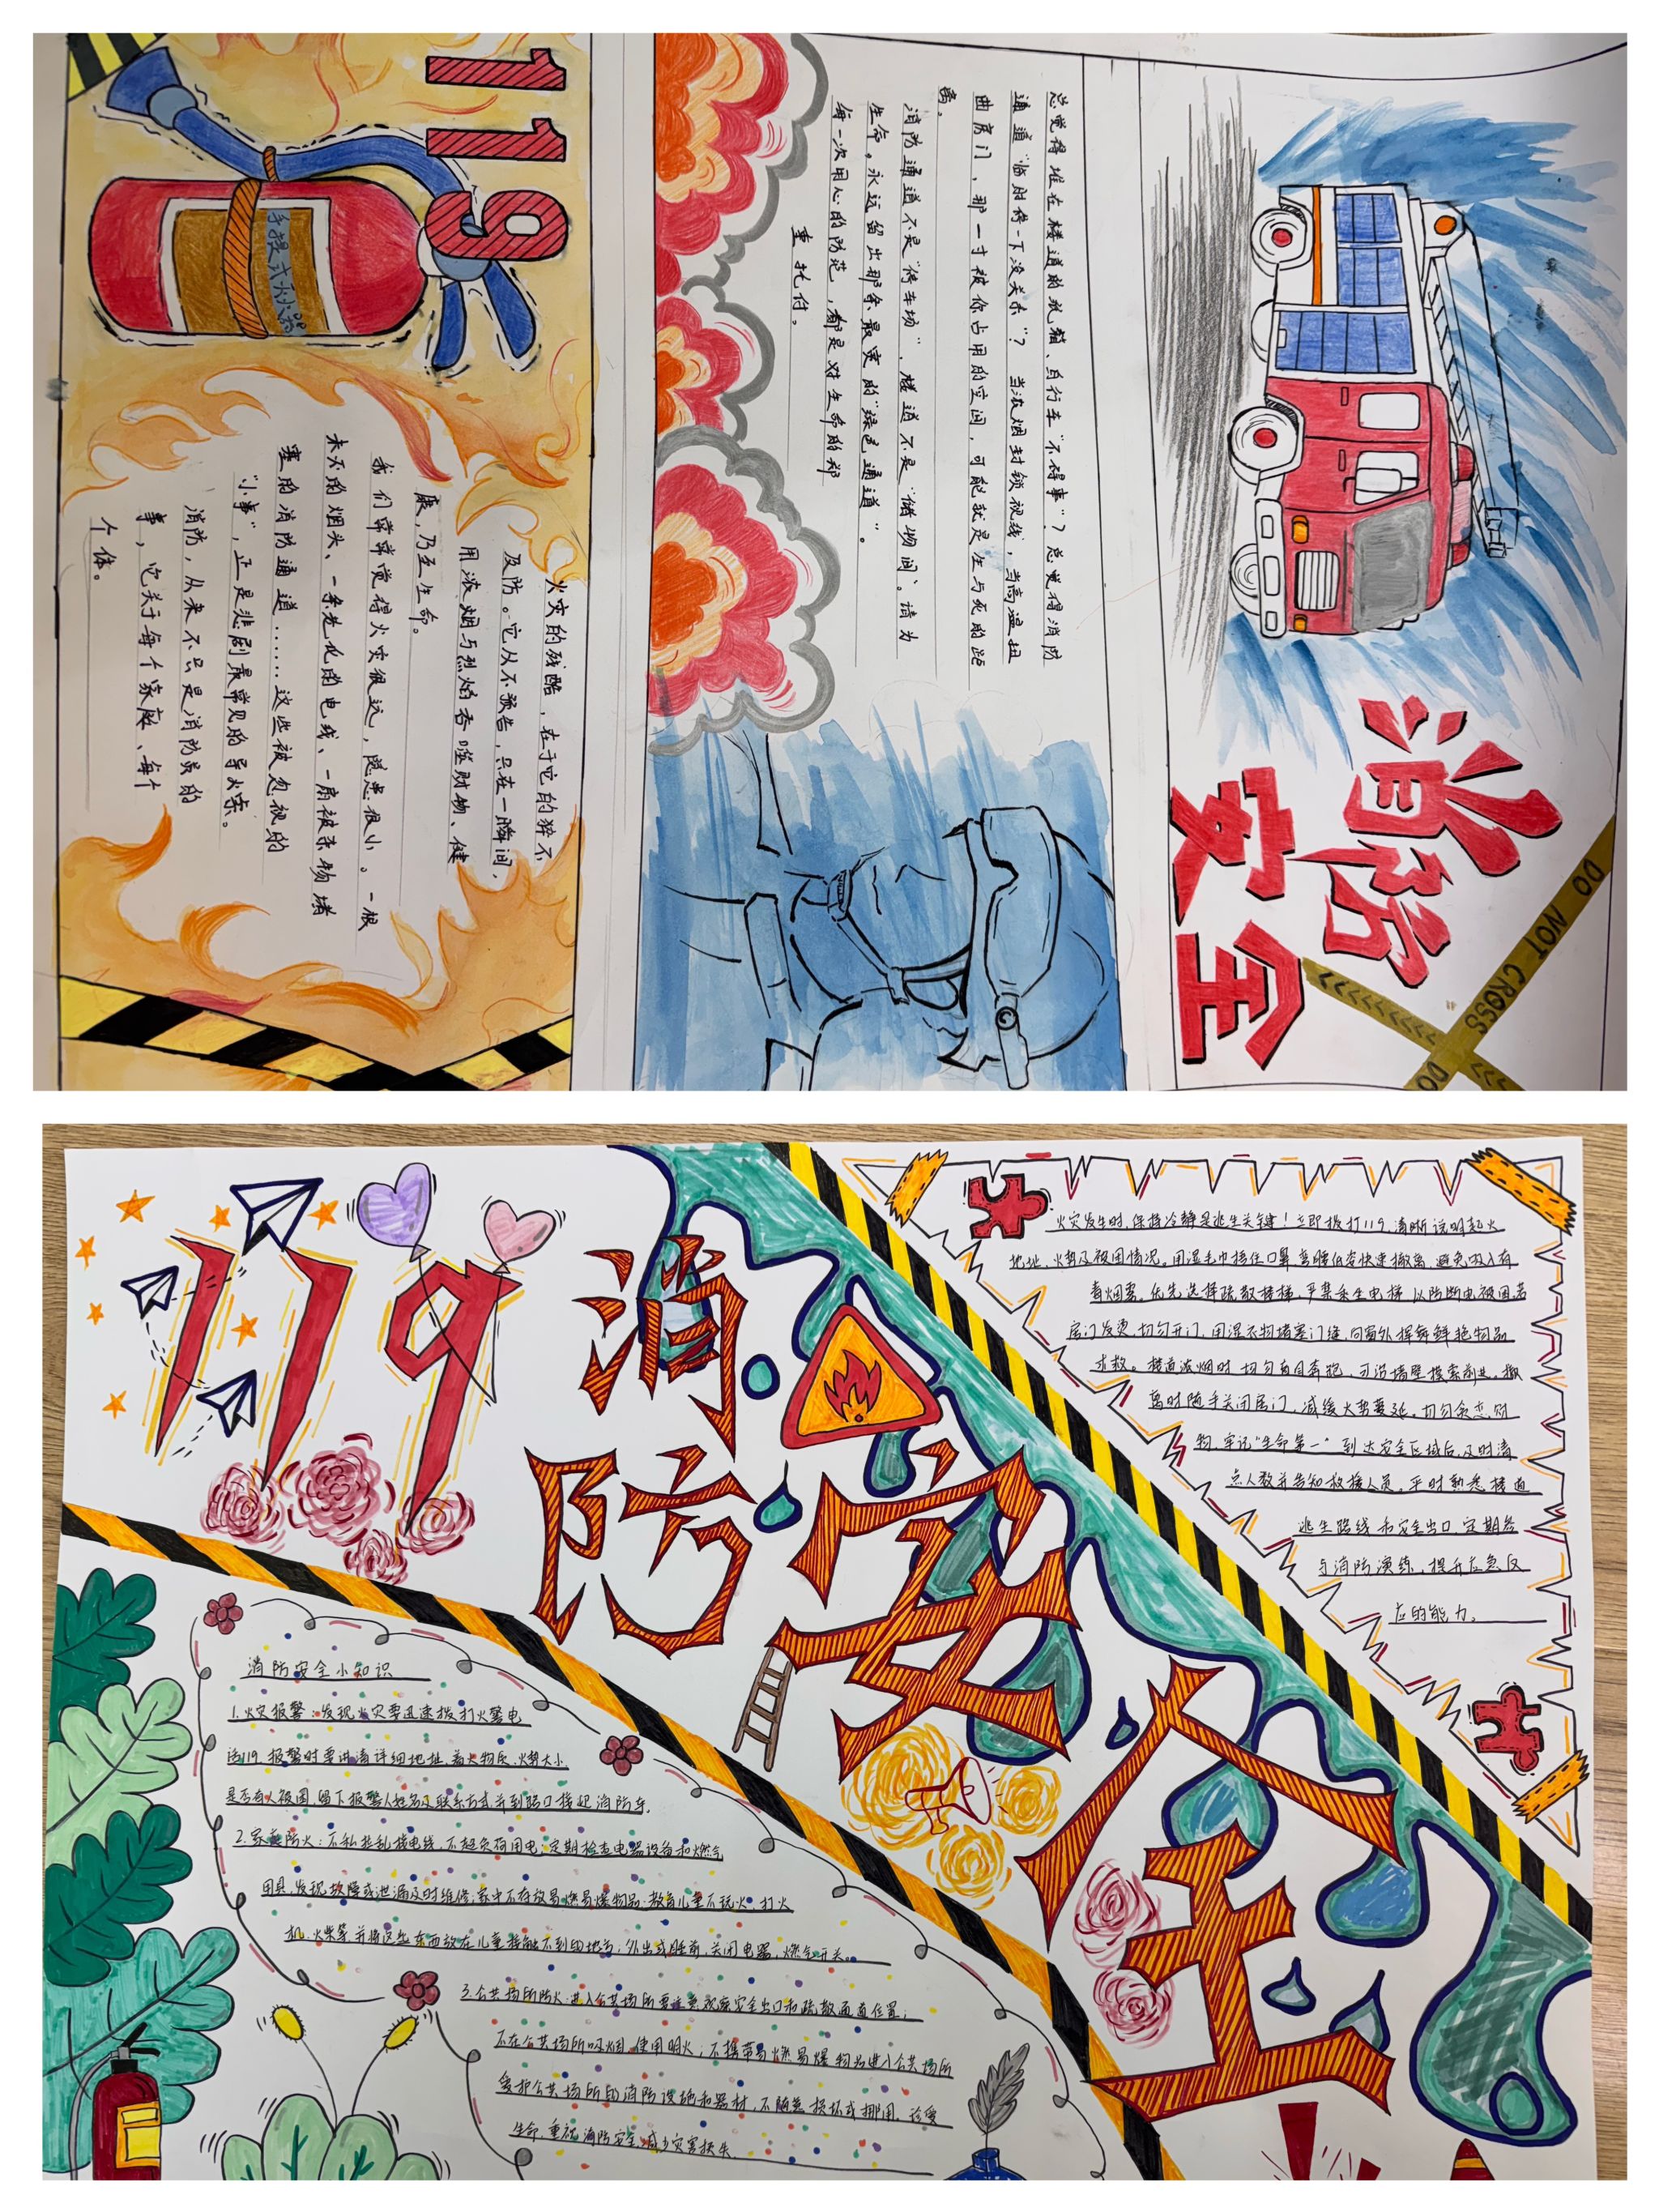 消防
安全
DO NOT CROSS
DO
总觉得堆在楼道的纸箱、自行车“不碍事”？总觉得消防
通道“临时停一下没关系”？当浓烟封锁视线，当高温扭
曲房门，那一寸被你占用的空间，可能就是生与死的距
离。
消防通道不是“停车场”，楼道不是“储物间”。请为
生命，永远留出那条最宽的“绿色通道”。
每一次用心的防范，都是对生命的郑
重托付。
119
手提式灭火器
火灾的残酷，在于它的猝不
及防。它从不预告，只在一瞬间，
用浓烟与烈焰吞噬财物、健
康，乃至生命。
我们常常觉得火灾很远，隐患很小。一根
未灭的烟头、一条老化的电线、一扇被杂物堵
塞的消防通道……这些被忽视的
“小事”，正是悲剧最常见的导火索。
消防，从来不只是消防员的
事，它关于每个家庭、每个
个体。
119
消
防
安
全
火灾发生时，保持冷静是逃生关键！立即拨打119，清晰说明起火
地址、火势及被困情况。用湿毛巾捂住口鼻，弯腰低姿快速撤离，避免吸入有
毒烟雾。优先选择疏散楼梯，严禁乘坐电梯，以防断电被困若
房门发烫，切勿开门，用湿衣物堵塞门缝，向窗外挥舞鲜艳物品
求救。楼道浓烟时，切勿盲目奔跑，可沿墙壁摸索前进。撤
离时随手关闭房门，减缓火势蔓延。切勿贪恋财
物，牢记“生命第一”到达安全区域后，及时清
点人数并告知救援人员。平时熟悉楼道
逃生路线和安全出口，定期参
与消防演练，提升应急反
应的能力。
消防安全小知识
1.火灾报警：发现火灾要迅速拨打火警电
话119，报警时要讲清详细地址、着火物质、火势大小、
是否有人被困，留下报警人姓名及联系方式，并到路口接迎消防车。
2.家庭防火：不私拉乱接电线，不超负荷用电；定期检查电器设备和燃气
用具，发现故障或泄漏及时维修；家中不存放易燃易爆物品，教育儿童不玩火，打火
机、火柴等并将这些东西放在儿童接触不到的地方；外出或睡前，关闭电器，燃气开关。
3.公共场所防火：进入公共场所要注意观察安全出口和疏散通道位置；
不在公共场所吸烟、使用明火；不携带易燃易爆物品进入公共场所
爱护公共场所的消防设施和器材，不随意损坏或挪用。珍爱
生命，重视消防安全，减少灾害损失